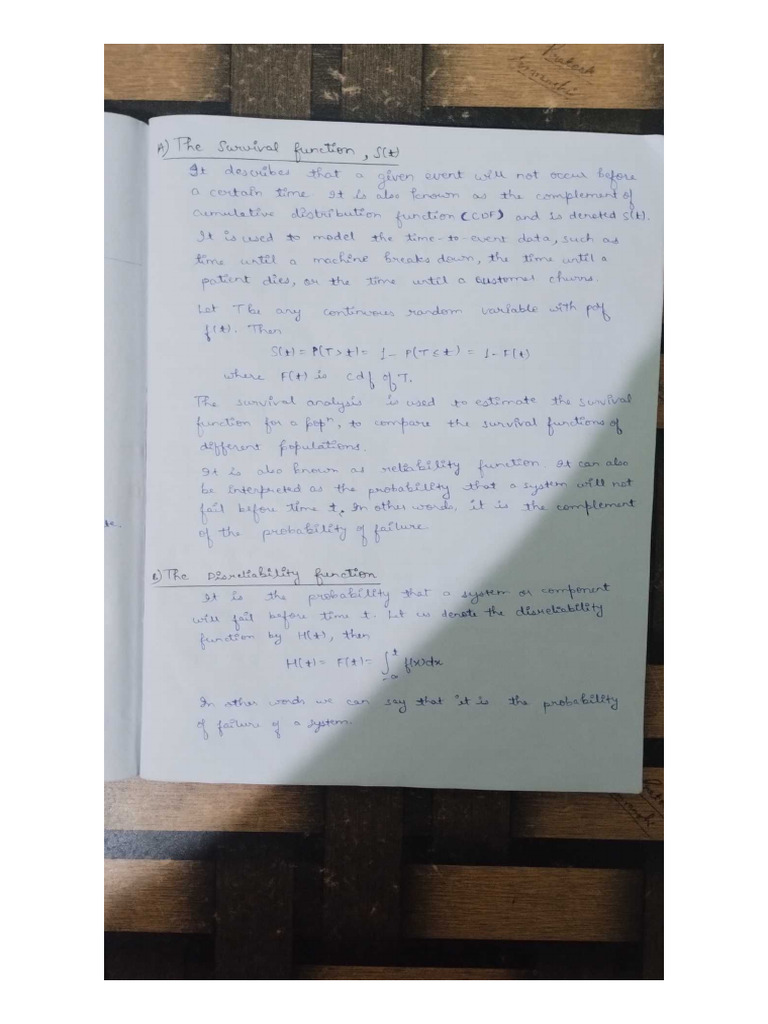 A) The Survival function, S(t)
It describes that a given event will not occur before
a certain time. It is also known as the complement of
cumulative distribution function (CDF) and is denoted S(t).
It is used to model the time-to-event data, such as
time until a machine breaks down, the time until a
patient dies, or the time until a customer churns.
Let T be any continuous random variable with pdf
f(t). Then
S(t) = P(T > t) = 1 - P(T ≤ t) = 1 - F(t)
where F(t) is cdf of T.
The survival analysis is used to estimate the survival
function for a popⁿ, to compare the survival functions of
different populations.
It is also known as reliability function. It can also
be interpreted as the probability that a system will not
fail before time t. In other words, it is the complement
of the probability of failure.
B) The Disreliability function
It is the probability that a system or component
will fail before time t. Let us denote the disreliability
function by H(t), then
H(t) = F(t) = ∫_{-∞}^{t} f(x)dx
In other words we can say that it is the probability
of failure of a system.